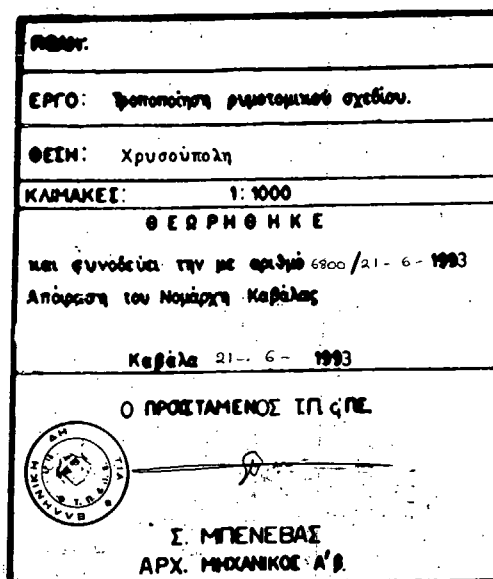 ΕΡΓΟ: Τροποποίηση ρυμοτομικού σχεδίου.
ΘΕΣΗ: Χρυσούπολη
ΚΛΙΜΑΚΕΣ: 1:1000
ΘΕΩΡΗΘΗΚΕ
και συνοδεύει την με αριθμό 6800/21-6-1993
Απόφαση του Νομάρχη Καβάλας
Καβάλα 21-6-1993
Ο ΠΡΟΙΣΤΑΜΕΝΟΣ Τ.Π. ΠΕ.
Σ. ΜΠΕΝΕΒΑΣ
ΑΡΧ. ΜΗΧΑΝΙΚΟΣ Α'β.